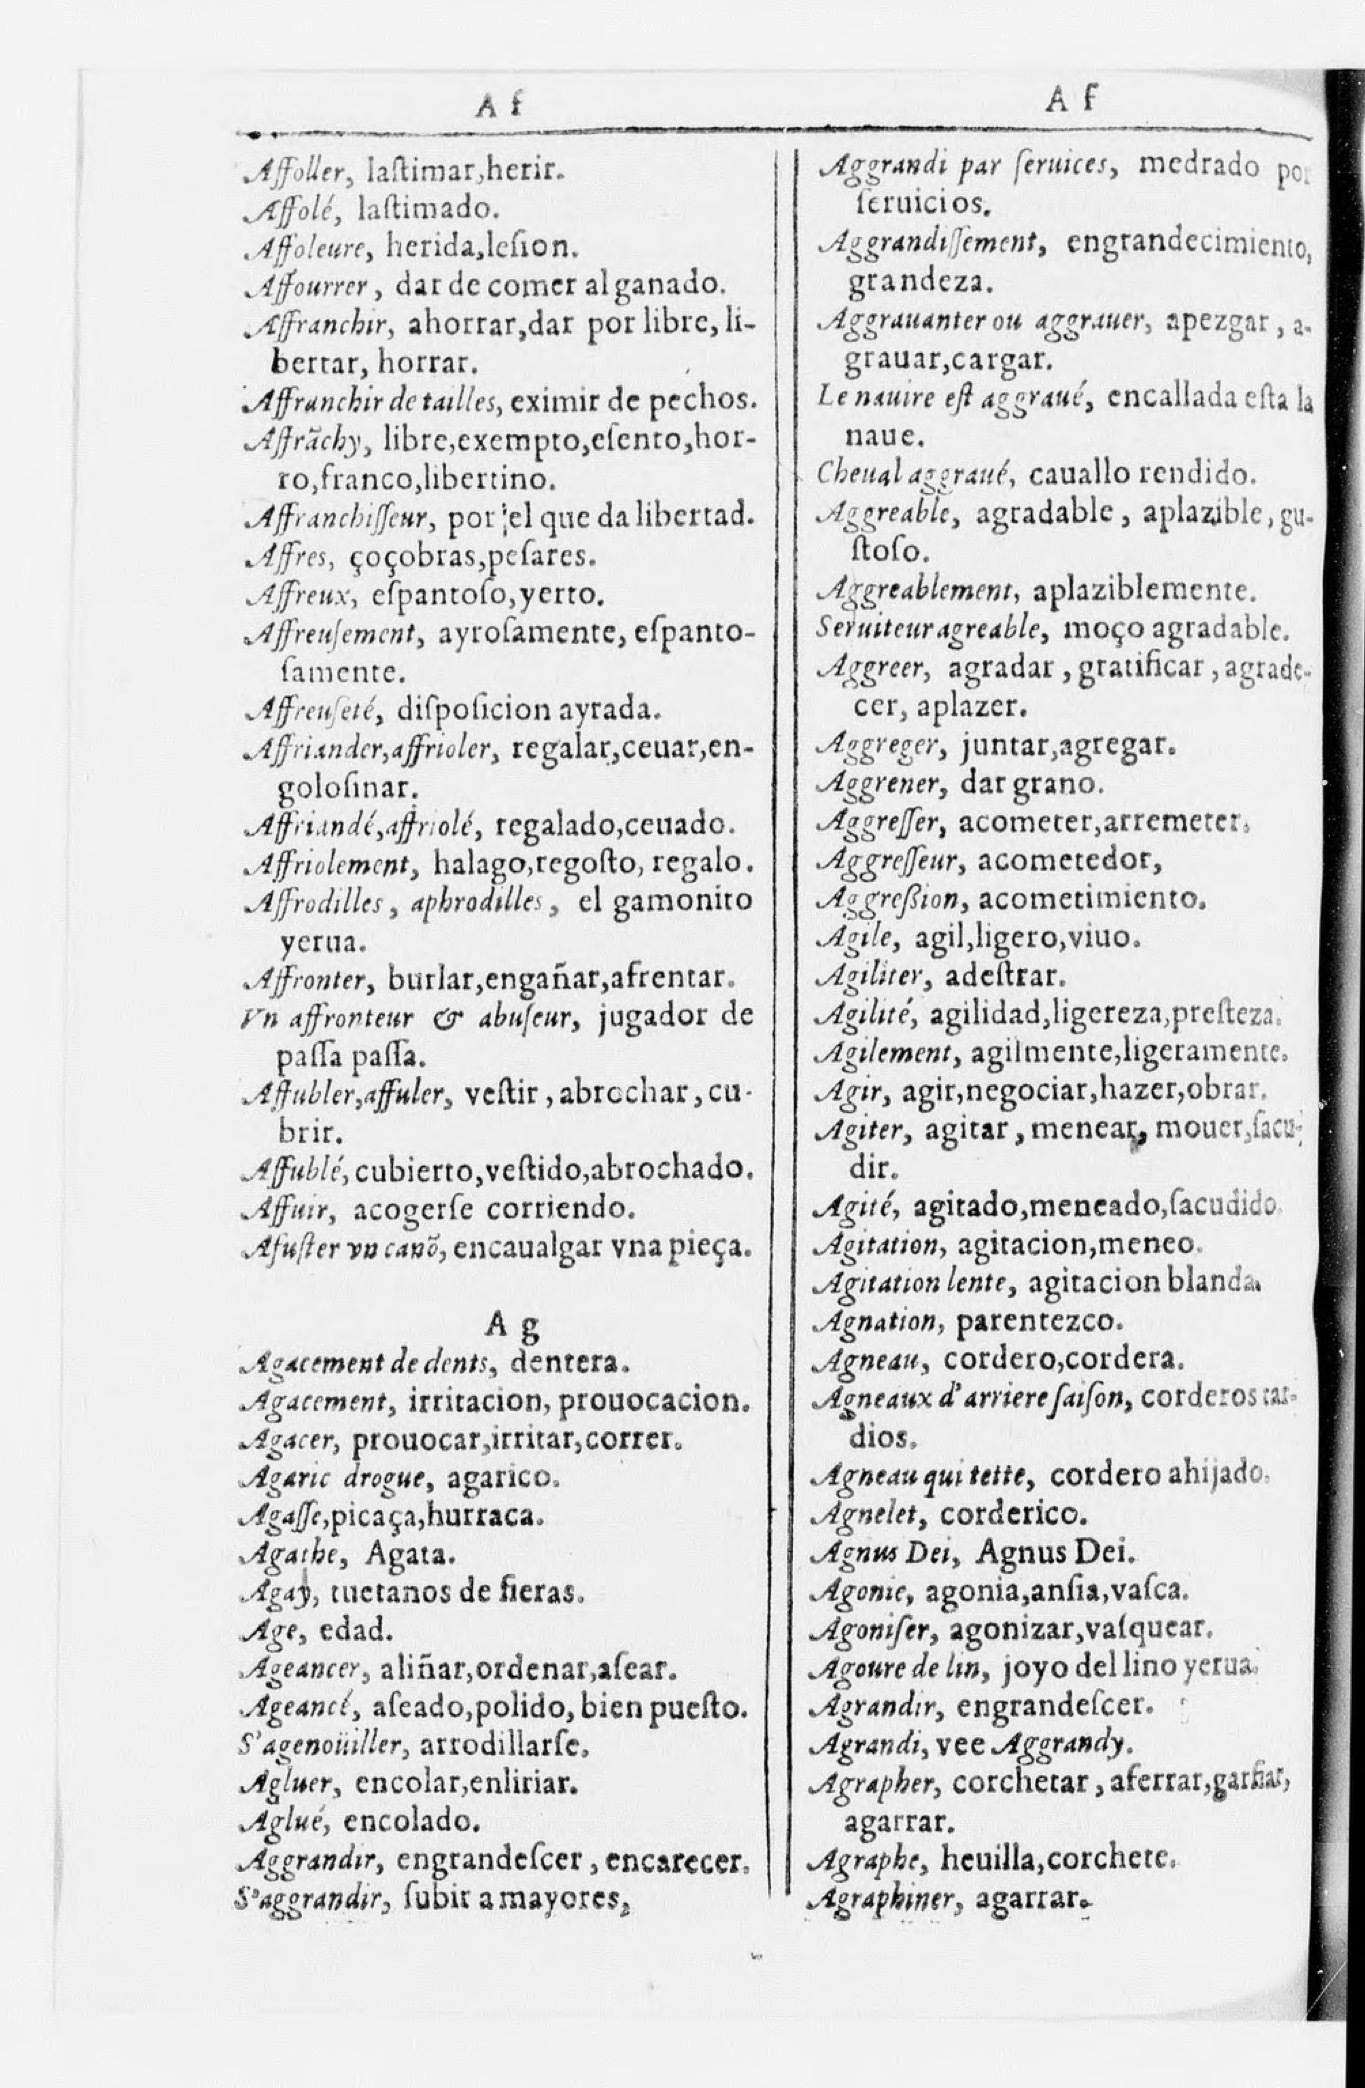 A f
Affoller, laſtimar,herir.
Affolé, laſtimado.
Affoleure, herida,leſion.
Affourrer, dar de comer al ganado.
Affranchir, ahorrar,dar por libre, li-
bertar, horrar.
Affranchir de tailles, eximir de pechos.
Affrãchy, libre,exempto,eſento,hor-
ro,franco,libertino.
Affranchiſſeur, por el que da libertad.
Affres, çoçobras,peſares.
Affreux, eſpantoſo,yerto.
Affreuſement, ayroſamente, eſpanto-
ſamente.
Affreuſeté, diſpoſicion ayrada.
Affriander,affrioler, regalar,ceuar,en-
goloſinar.
Affriandé,affriolé, regalado,ceuado.
Affriolement, halago,regoſto, regalo.
Affrodilles, aphrodilles, el gamonito
yerua.
Affronter, burlar,engañar,afrentar.
Vn affronteur & abuſeur, jugador de
paſſa paſſa.
Affubler,affuler, veſtir, abrochar, cu-
brir.
Affublé, cubierto,veſtido,abrochado.
Affuir, acogerſe corriendo.
Afuſter vn canõ, encaualgar vna pieça.
A g
Agacement de dents, dentera.
Agacement, irritacion, prouocacion.
Agacer, prouocar,irritar,correr.
Agaric drogue, agarico.
Agaſſe,picaça,hurraca.
Agathe, Agata.
Agay, tuetanos de fieras.
Age, edad.
Ageancer, aliñar,ordenar,aſear.
Ageancé, aſeado,polido, bien pueſto.
S'agenoüiller, arrodillarſe.
Agluer, encolar,enliriar.
Aglué, encolado.
Aggrandir, engrandeſcer, encarecer.
S'aggrandir, ſubir a mayores,
A f
Aggrandi par ſeruices, medrado por
ſeruicios.
Aggrandiſſement, engrandecimiento,
grandeza.
Aggrauanter ou aggrauer, apezgar, a-
grauar,cargar.
Le nauire eſt aggraué, encallada eſta la
naue.
Cheual aggraué, cauallo rendido.
Aggreable, agradable, aplazible, gu-
ſtoſo.
Aggreablement, aplaziblemente.
Seruiteur agreable, moço agradable.
Aggreer, agradar, gratificar, agrade-
cer, aplazer.
Aggreger, juntar,agregar.
Aggrener, dar grano.
Aggreſſer, acometer,arremeter.
Aggreſſeur, acometedor,
Aggreßion, acometimiento.
Agile, agil,ligero,viuo.
Agiliter, adeſtrar.
Agilité, agilidad,ligereza,preſteza.
Agilement, agilmente,ligeramente.
Agir, agir,negociar,hazer,obrar.
Agiter, agitar, menear, mouer,ſacu-
dir.
Agité, agitado,meneado,ſacudido.
Agitation, agitacion,meneo.
Agitation lente, agitacion blanda.
Agnation, parentezco.
Agneau, cordero,cordera.
Agneaux d'arriere ſaiſon, corderos tar-
dios.
Agneau qui tette, cordero ahijado.
Agnelet, corderico.
Agnus Dei, Agnus Dei.
Agonie, agonia,anſia,vaſca.
Agoniſer, agonizar,vaſquear.
Agoure de lin, joyo del lino yerua.
Agrandir, engrandeſcer.
Agrandi, vee Aggrandy.
Agrapher, corchetar, aferrar,garfiar,
agarrar.
Agraphe, heuilla,corchete.
Agraphiner, agarrar.